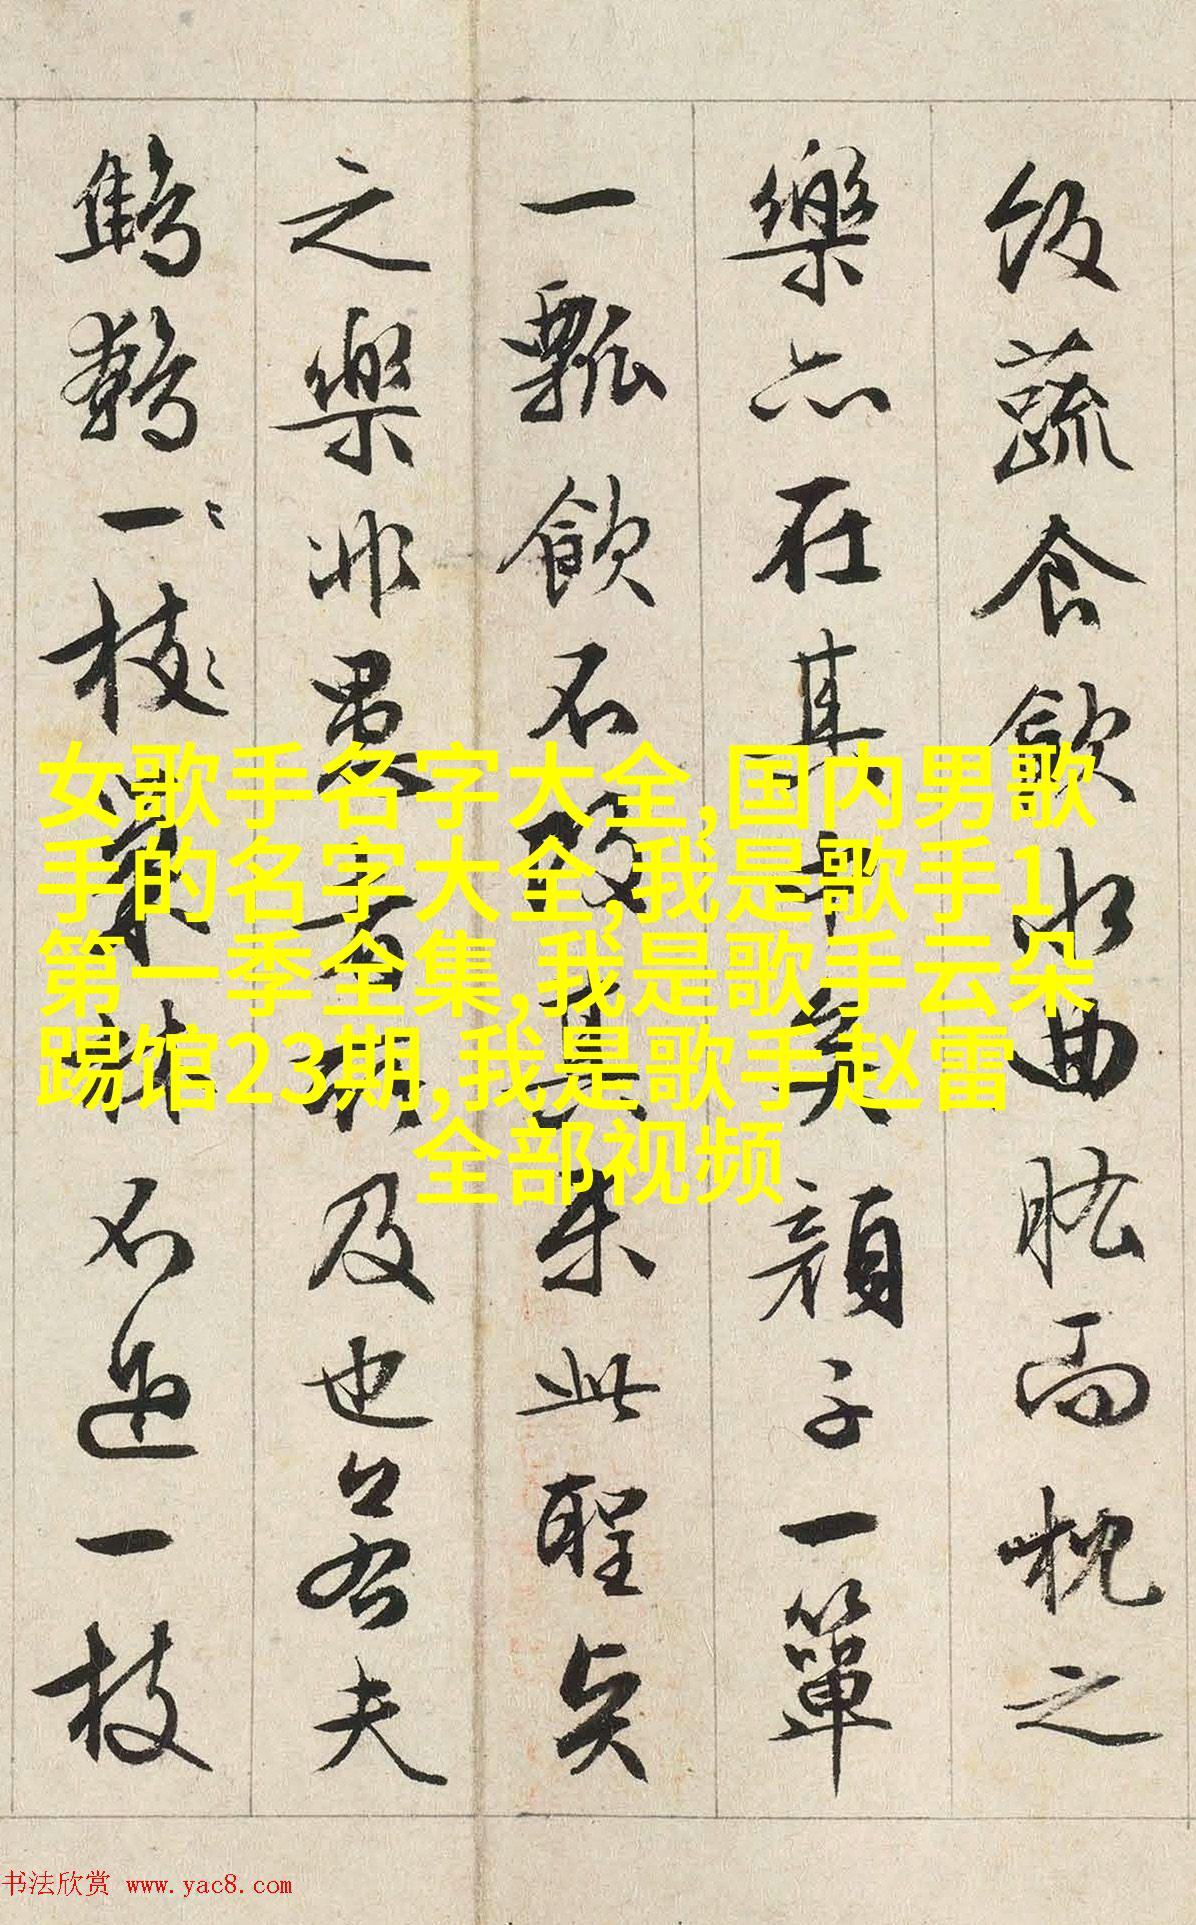 飯蔬食飲水曲肱而枕之
樂亦在其中矣顏子一簞
一瓢飲不改其樂此聖賢
之樂非愚者所及也若夫
鷦鷯一枝巢林不過一枝
女歌手名字大全,国内男歌
手的名字大全,我是歌手1
第一季全集,我是歌手云朵
踢馆23期,我是歌手赵雷
全部视频
书法欣赏 www.yac8.com